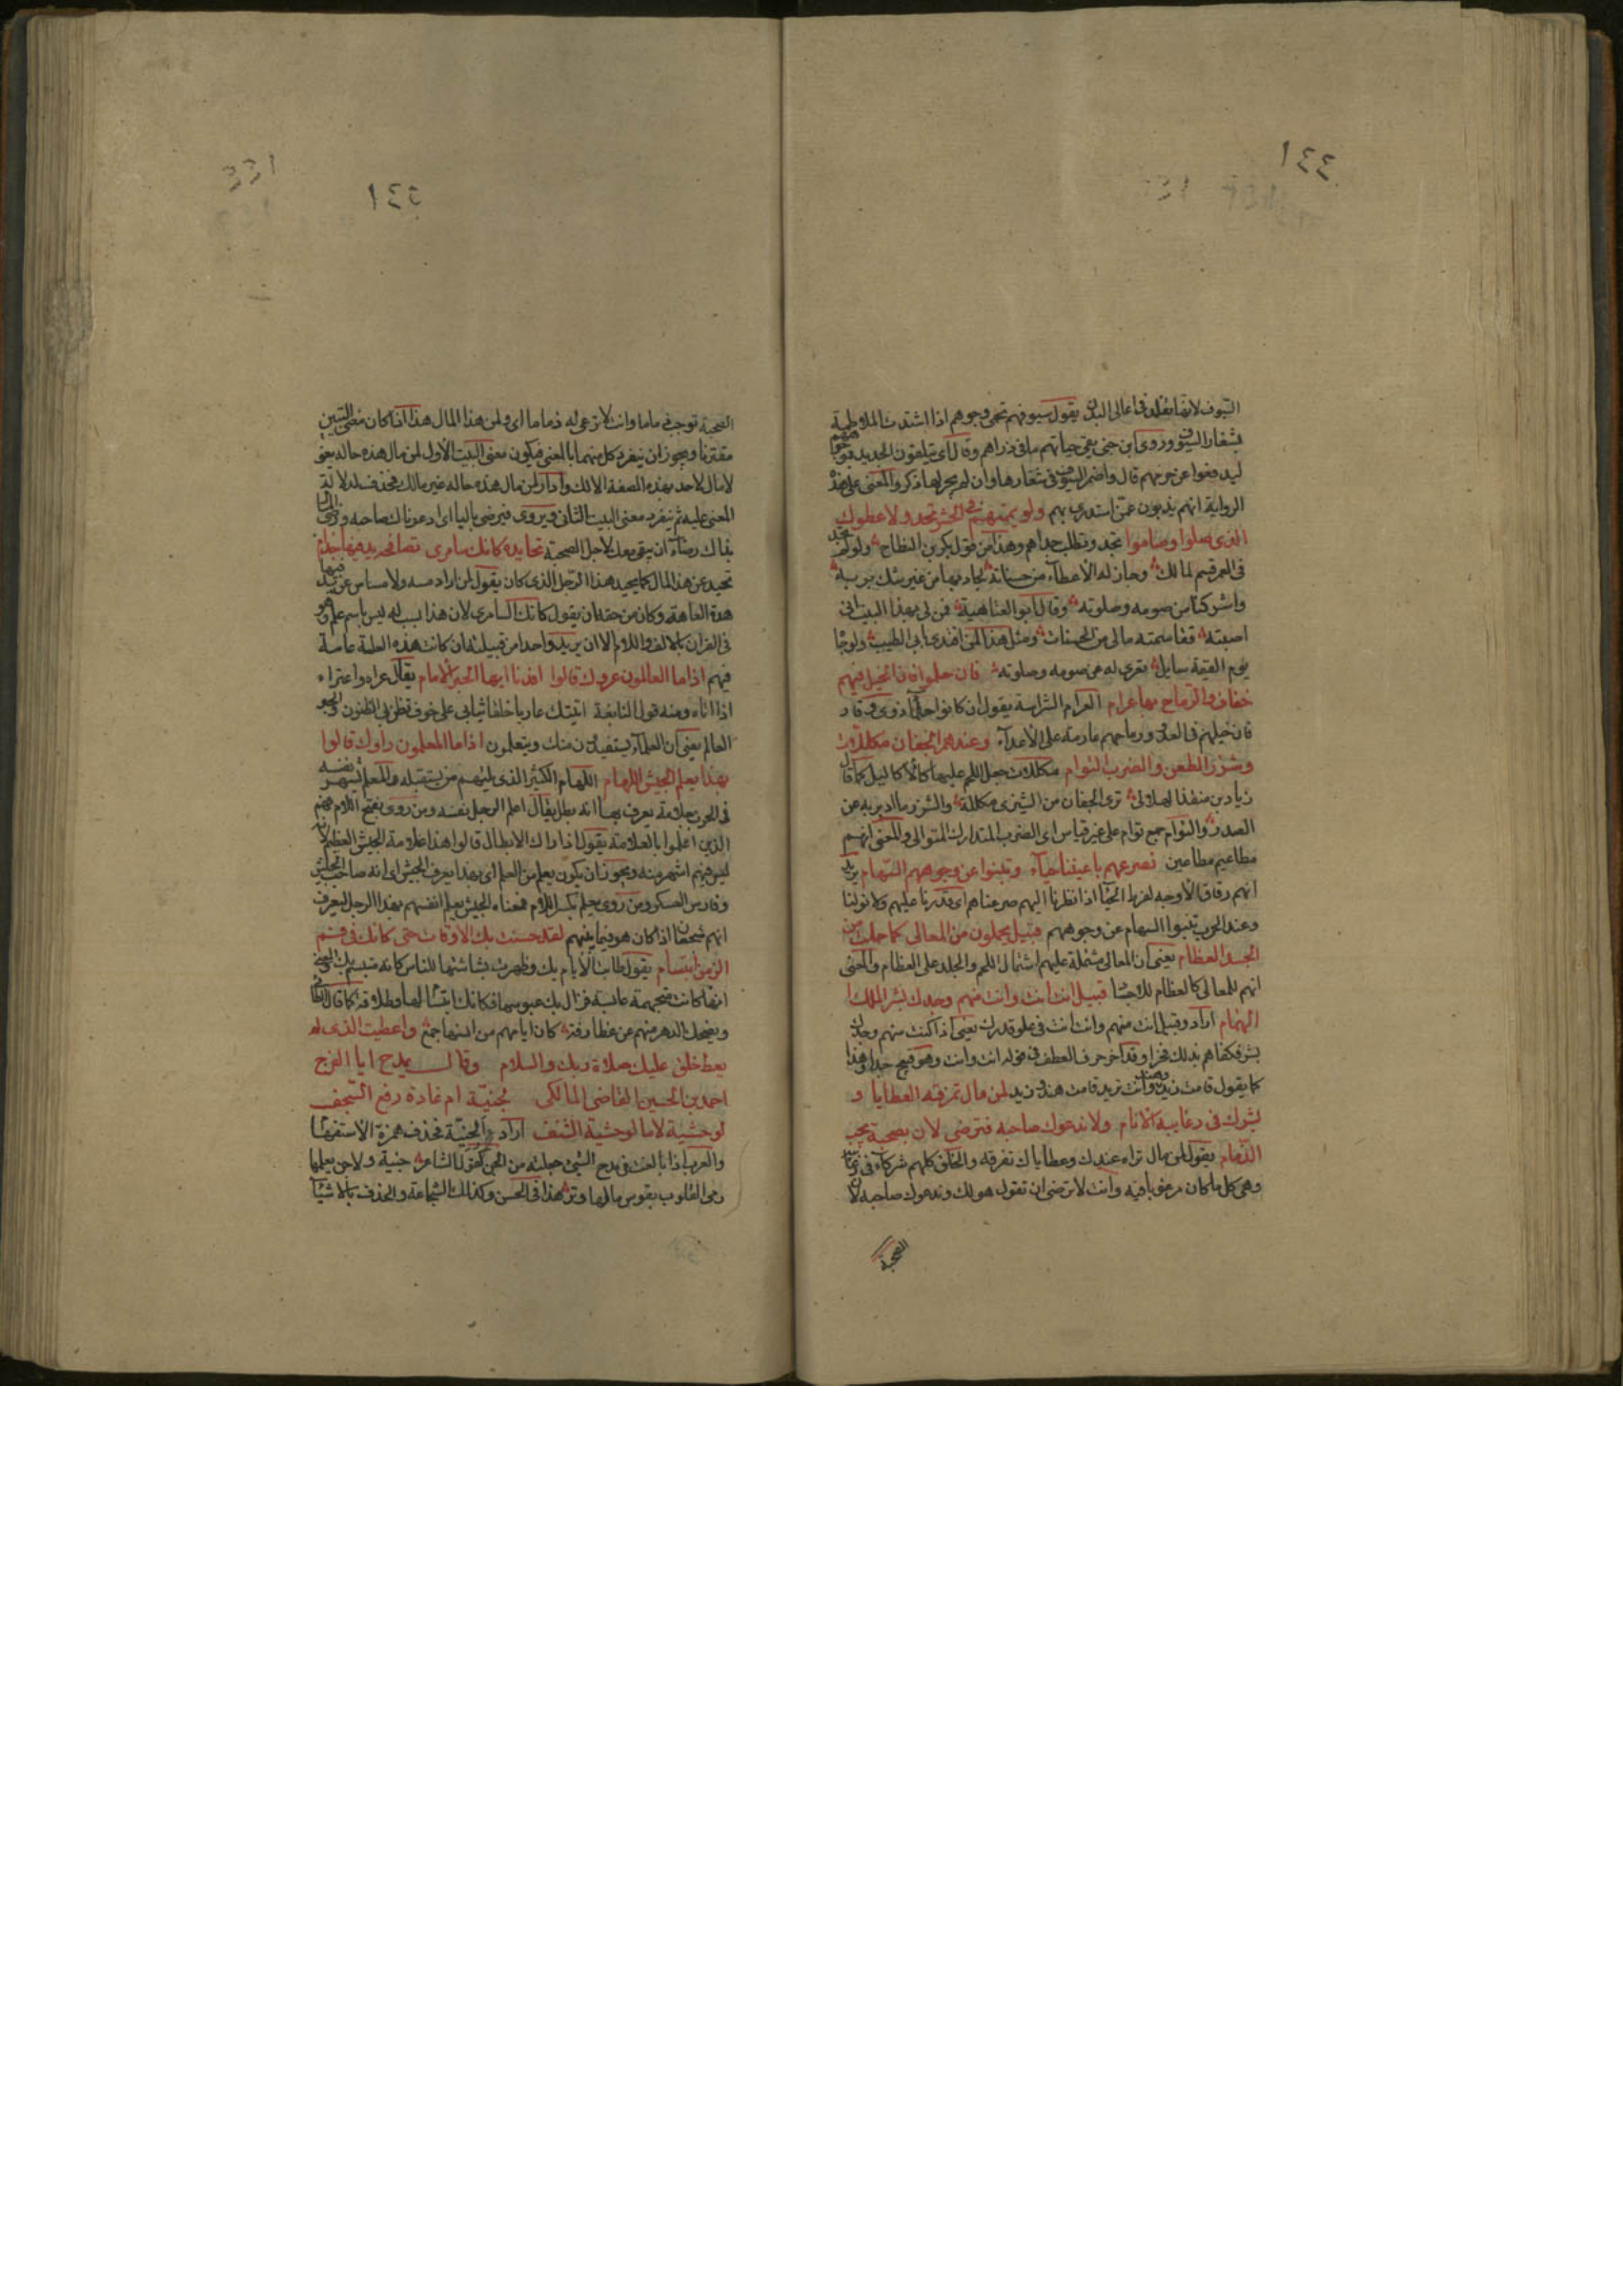 ١٤٤
السيوف لانها تقلد في اعالي البدن يقول سيوفهم تحمى وجوههم اذا اشتدت الملاطمة
بشفار السيوف وروى ابن جنى جباتهم ما في ذراهم وقال اى يتلقون الحديد
ليدفعوا عن حريمهم قال واضمر السيوف في شفارها وان لم يجر لها ذكر والمعنى على هذه
الرواية انهم يذبون عمن استدرى بهم ولو يممتهم في الحشر تجدو لاعطوك
الذى صلوا وصاموا تجدو تطلب جداهم وهذا من قول بكر بن النطاح ولو لم يجد
في العمر قسم لمالك وجاز له الاعطاء من حسناته لجاد بها من غير شك بربه
واشركنا من صومه وصلوته وقال ابو العتاهية فمن لى بهذا البيت انى
اصبته فقاسمته مالى من الحسنات ومثل هذا المن افتدى ابى الطيب ولو جا
يوم القيمة سايل تعرى له عن صومه وصلوته فان حلموا فان الخيل فيهم
خفاف والرماح بها عرام العرام الشراسة يقول ان كانوا حلما ذوى وقار
فان خيلهم في العدو ورماحهم عارمة على الاعداء وعندهم الجفان مكللات
وشزر الطعن والضرب التوام مكللات جعل اللحم عليها كالاكاليل كما قال
زياد بن منقذ الهلالى ترى الجفان من الشيزى مكللة والشزر ما ادير به عن
الصدر والتوام جمع توام على غير قياس اى الضرب المتدارك المتوالى والمعنى انهم
مطاعيم مطاعين نصرعهم باعيننا حياء وتنبوا عن وجوههم السهام يريد
انهم رقاق الاوجه لفرط الحيا اذا نظرنا اليهم صرعناهم اى قدرنا عليهم
وعند الحرب تنبوا السهام عن وجوههم قبيل يحملون من المعالى كما حملت من
الجسد العظام يعنى ان المعالى مشتملة عليهم اشتمال اللحم والجلد على العظام والمعنى
انهم للمعالى كالعظام للاجسا قبيل انت انت وانت منهم وجدك بشر الملك
الهمام اراد وقبيل انت منهم وانت انت في علو قدرك يعنى اذا كنت منهم وجدك
بشر فكفاهم بذلك فخرا وقد اخر حرف العطف في قوله انت وانت وهو قبيح جدا وهذا
كما يقول قامت زيد وهند وانت تريد قامت هند وزيد لمن مال تمزقه العطايا و
يشرك في رغايبه الانام ولا ندعوك صاحبه فترضى لان بصحبة يجب
الذمام يقول لمن مال تراه عندك وعطاياك تفرقه والخلق كلهم شركاء في رغائبه
وهى كل ما كان مرغوبا فيه وانت لا ترضى ان نقول هو لك وندعوك صاحبه لان
الصحبة
١٤٥
الصحبة توجب ذماما وانت لا ترعى له ذماما اى ولمن هذا المال هذا اذا كان معنى البيتين
مقترنا ويجوز ان ينفرد كل منهما بالمعنى فيكون معنى البيت الاول لمن مال هذه حاله يعنى
لا مال لاحد بهذه الصفة الا لك واراد لمن مال هذه حاله غير مالك فحذف لدلالة
المعنى عليه ثم ينفرد معنى البيت الثانى ويروى فيرضى باليا اى ادعوناك صاحبه
بذاك رضاء ان يبقى معك لاجل الصحبة تحايده كانك سامرى تصافحه يد فيها جذام
تحيد عن هذا المال كما يحيد هذا الرجل الذى كان يقول لمن اراد مسه ولا مساس عن يد فيها
هذه العاهة وكان من حقه ان يقول كانك السامرى لان هذا نسب له ليس باسم علم وهو
في القران بالالف واللام الا ان يريد واحدا من قبيلته ان كانت هذه العلة عامة
فيهم اذا ما العالمون عروك قالوا افدنا ايها الحبر الامام يقال عراه واعتراه
اذا اتاه ومنه قول النابغة اتيتك عاريا خلقا ثيابى على خوف تظن بى الظنون والحبر
العالم يعنى ان العلماء يستفيدون منك ويتعلمون اذا ما المعلمون راوك قالوا
بهذا يعلم الجيش اللهام اللهام الكثير الذى يلتهم من يستقبله والمعلم الذى شهر نفسه
في الحرب بعلامة يعرف بها انه بطل يقال اعلم الرجل نفسه ومن روى بفتح اللام فهم
الذين اعلموا بالعلامة يقول اذا راك الابطال قالوا هذا علامة الجيش العظيم لانه
ليس فيهم اشهر منه ويجوز ان يكون يعلم من العلم اى بهذا يعرف الجيش اى انه صاحب الجيش
وفارس العسكر ومن روى يعلم بكسر اللام فمعناه الجيش يعلم انفسهم بهذا الرجل ليعرف
انهم شجعان اذا كان هو فيما بينهم لقد حسنت بك الاوقات حتى كانك في فم
الزمن ابتسام يقول طابت الايام بك وظهرت بشاشتها للناس كانه متبسم بك والمعنى
انها كانت متجهمة عابسة فزال بك عبوسها فكانك ابتسا لها وطلاقة كما قال الطائى
ويضحك الدهر منهم عن غطارفة كان ايامهم من انسها جمع واعطيت الذى لم
يعط خلق عليك صلاة ربك والسلام وقال يمدح ابا الفرج
احمد بن الحسين القاضى المالكى لجنيّة ام غادة رفع السّجف
لوحشية لا ما لوحشية الشنف اراد الجنيّة فحذف همزة الاستفها
والعرب اذا بالغت في مدح الشى جعلته من الجن كقول الشاعر جنية ولا جن يعلمها
رمى القلوب بقوس ما لها وتر هذا في الحسن وكذلك الشجاعة والحذف بالاشيا